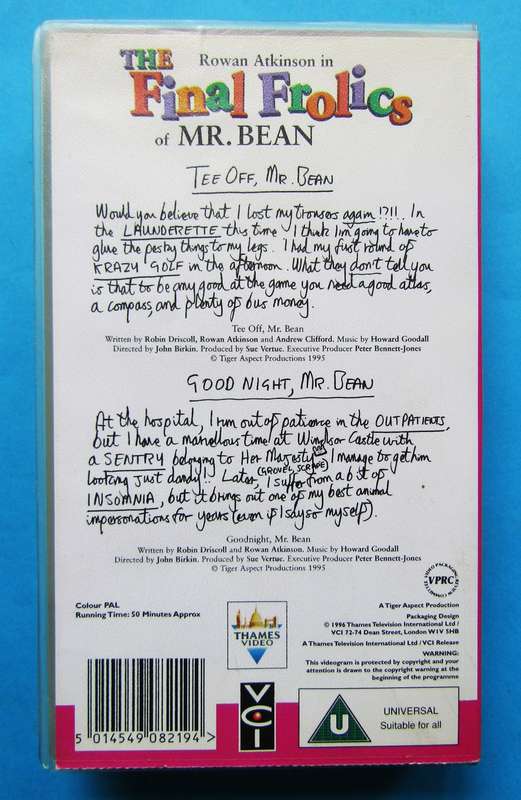 Rowan Atkinson in
THE
Final Frolics
of MR. BEAN
TEE OFF, MR. BEAN
Would you believe that I lost my trousers again !?!!. In
the LAUNDERETTE this time. I think I'm going to have to
glue the pesky things to my legs. I had my first round of
KRAZY GOLF in the afternoon. What they don't tell you
is that to be any good at the game you need a good atlas,
a compass, and plenty of bus money.
Tee Off, Mr. Bean
Written by Robin Driscoll, Rowan Atkinson and Andrew Clifford. Music by Howard Goodall
Directed by John Birkin. Produced by Sue Vertue. Executive Producer Peter Bennett-Jones
© Tiger Aspect Productions 1995
GOOD NIGHT, MR. BEAN
At the hospital, I run out of patience in the OUTPATIENTS,
but I have a marvellous time at Windsor Castle with
a SENTRY belonging to Her Majesty (GROVEL, SCRAPE) I manage to get him
looking just dandy!! Later, I suffer from a bit of
INSOMNIA, but it brings out one of my best animal
impersonations for years (even if I say so myself).
Goodnight, Mr. Bean
Written by Robin Driscoll and Rowan Atkinson. Music by Howard Goodall
Directed by John Birkin. Produced by Sue Vertue. Executive Producer Peter Bennett-Jones
© Tiger Aspect Productions 1995
VIDEO PACKAGING REVIEW COMMITTEE
VPRC
Colour PAL
Running Time: 50 Minutes Approx
THAMES
VIDEO
A Tiger Aspect Production
Packaging Design
© 1996 Thames Television International Ltd /
VCI 72-74 Dean Street, London W1V 5HB
A Thames Television International Ltd / VCI Release
WARNING:
This videogram is protected by copyright and your
attention is drawn to the copyright warning at the
beginning of the programme
5 014549 082194 >
VCI
U
UNIVERSAL
Suitable for all